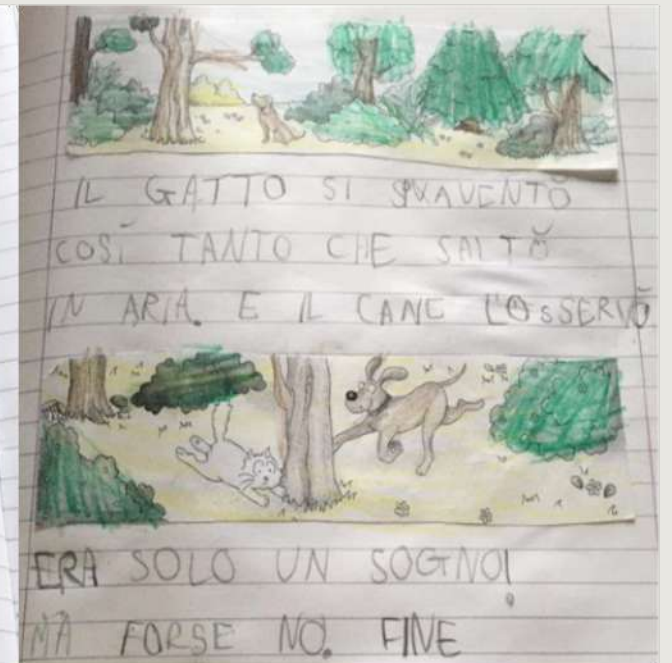 IL GATTO SI SPAVENTÒ
COSÍ TANTO CHE SALTÒ
IN ARIA. E IL CANE L'OSSERVÒ
ERA SOLO UN SOGNO!
MA FORSE NO. FINE